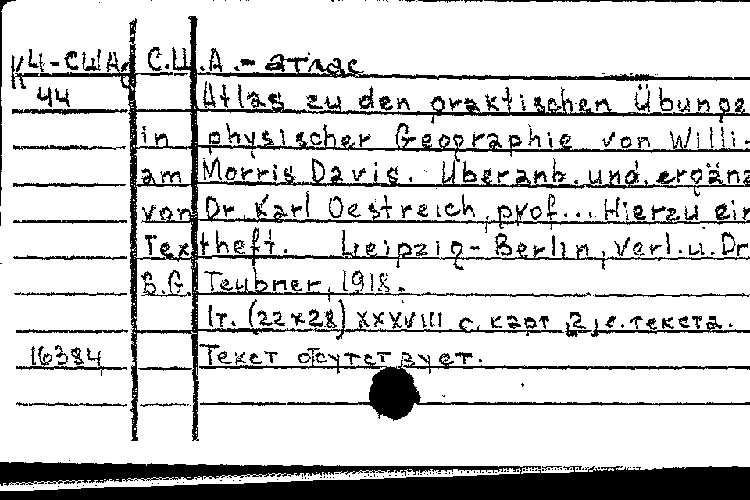 К4-США С.Ш.А.- атлас
44 Atlas zu den praktischen Übunge
in physischer Geographie von Willi-
am Morris Davis. Überanb. und. ergänz
von Dr Karl Oestreich, prof... Hierzu ein
Textheft. Leipzig-Berlin, Verl. u. Dr
B.G. Teubner, 1918.
1т. (22×28) XXXVIII с. карт, 2, с. текста.
16384 Текст отсутствует.